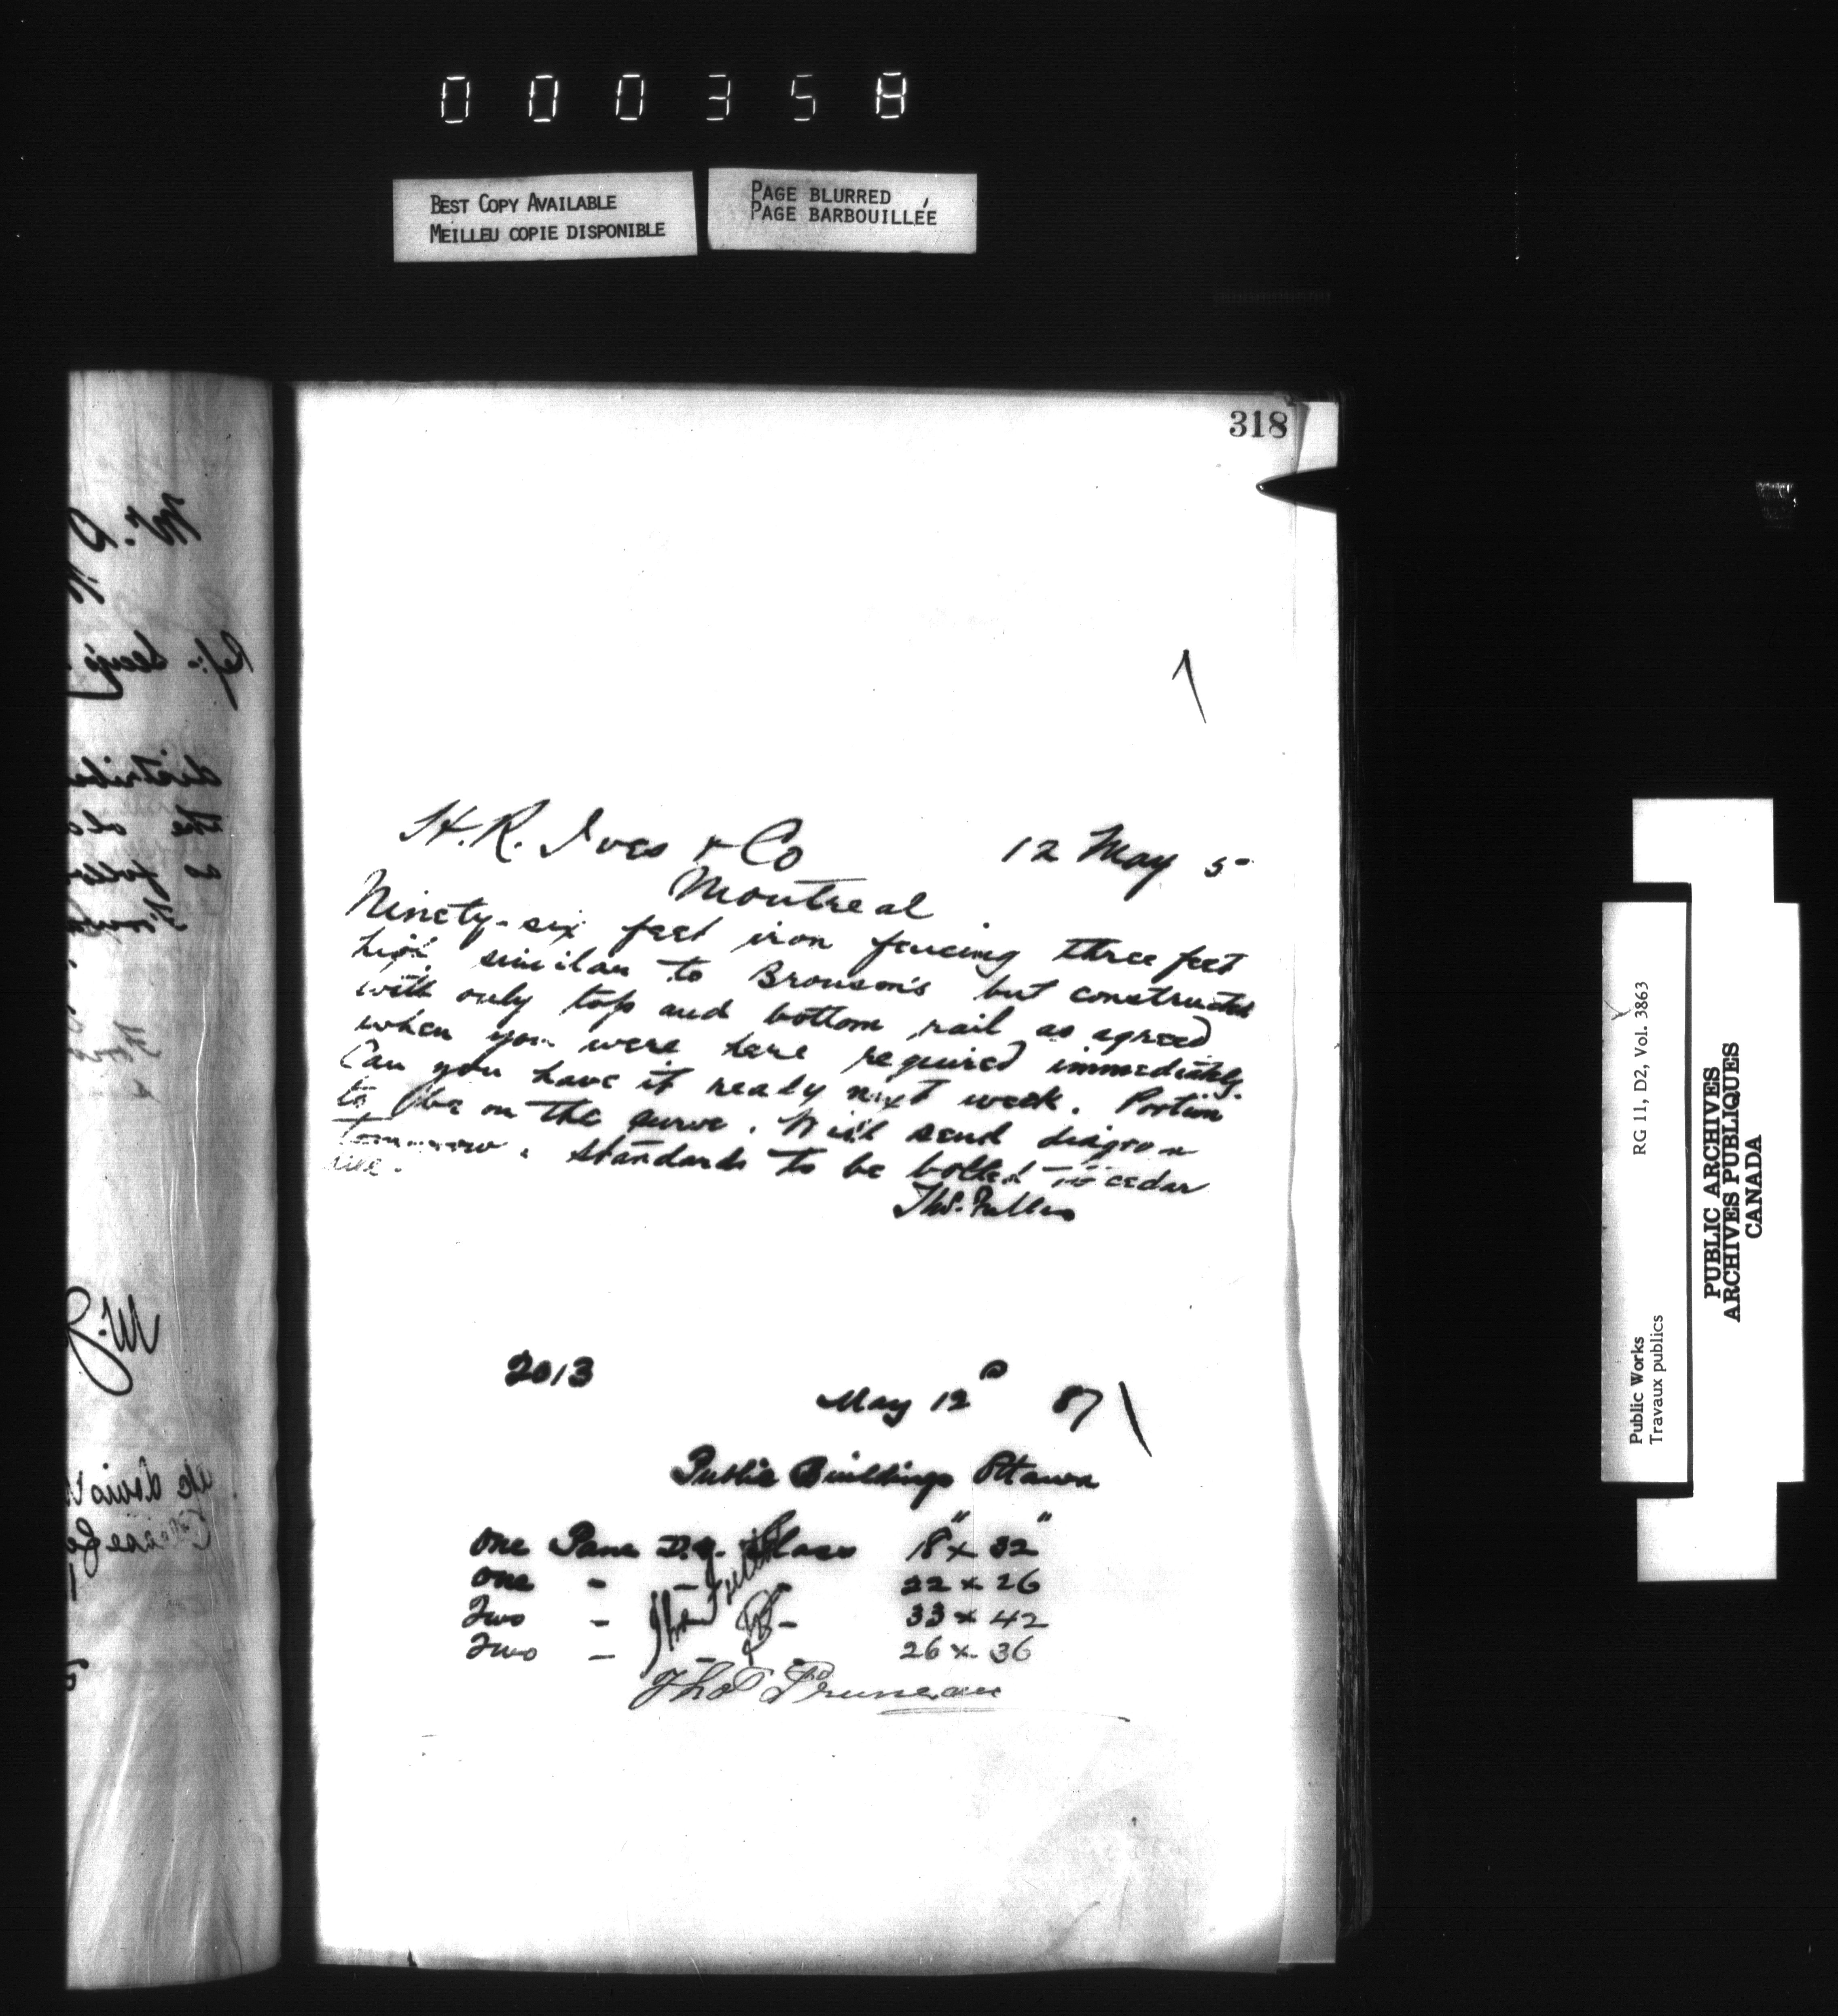 000358
BEST COPY AVAILABLE
MEILLEU COPIE DISPONIBLE
PAGE BLURRED
PAGE BARBOUILLÉE
318
H. R. Ives & Co 12 May 5
Montreal
Ninety-six feet iron fencing three feet
high similar to Bronson's but constructed
with only top and bottom rail as agreed
when you were here required immediately.
Can you have it ready next week. Portion
to be on the curve. Will send diagram
tomorrow. Standards to be bolted to cedar
Thos. Fuller
2013
May 12 87
Public Buildings Ottawa
One Pane D.G. Glass 18" x 32"
One - - 22 x 26
Two - - 33 x 42
Two - - 26 x 36
Thos Fuller
Thos Pruneau
RG 11, D2, Vol. 3863
Public Works
Travaux publics
PUBLIC ARCHIVES
ARCHIVES PUBLIQUES
CANADA